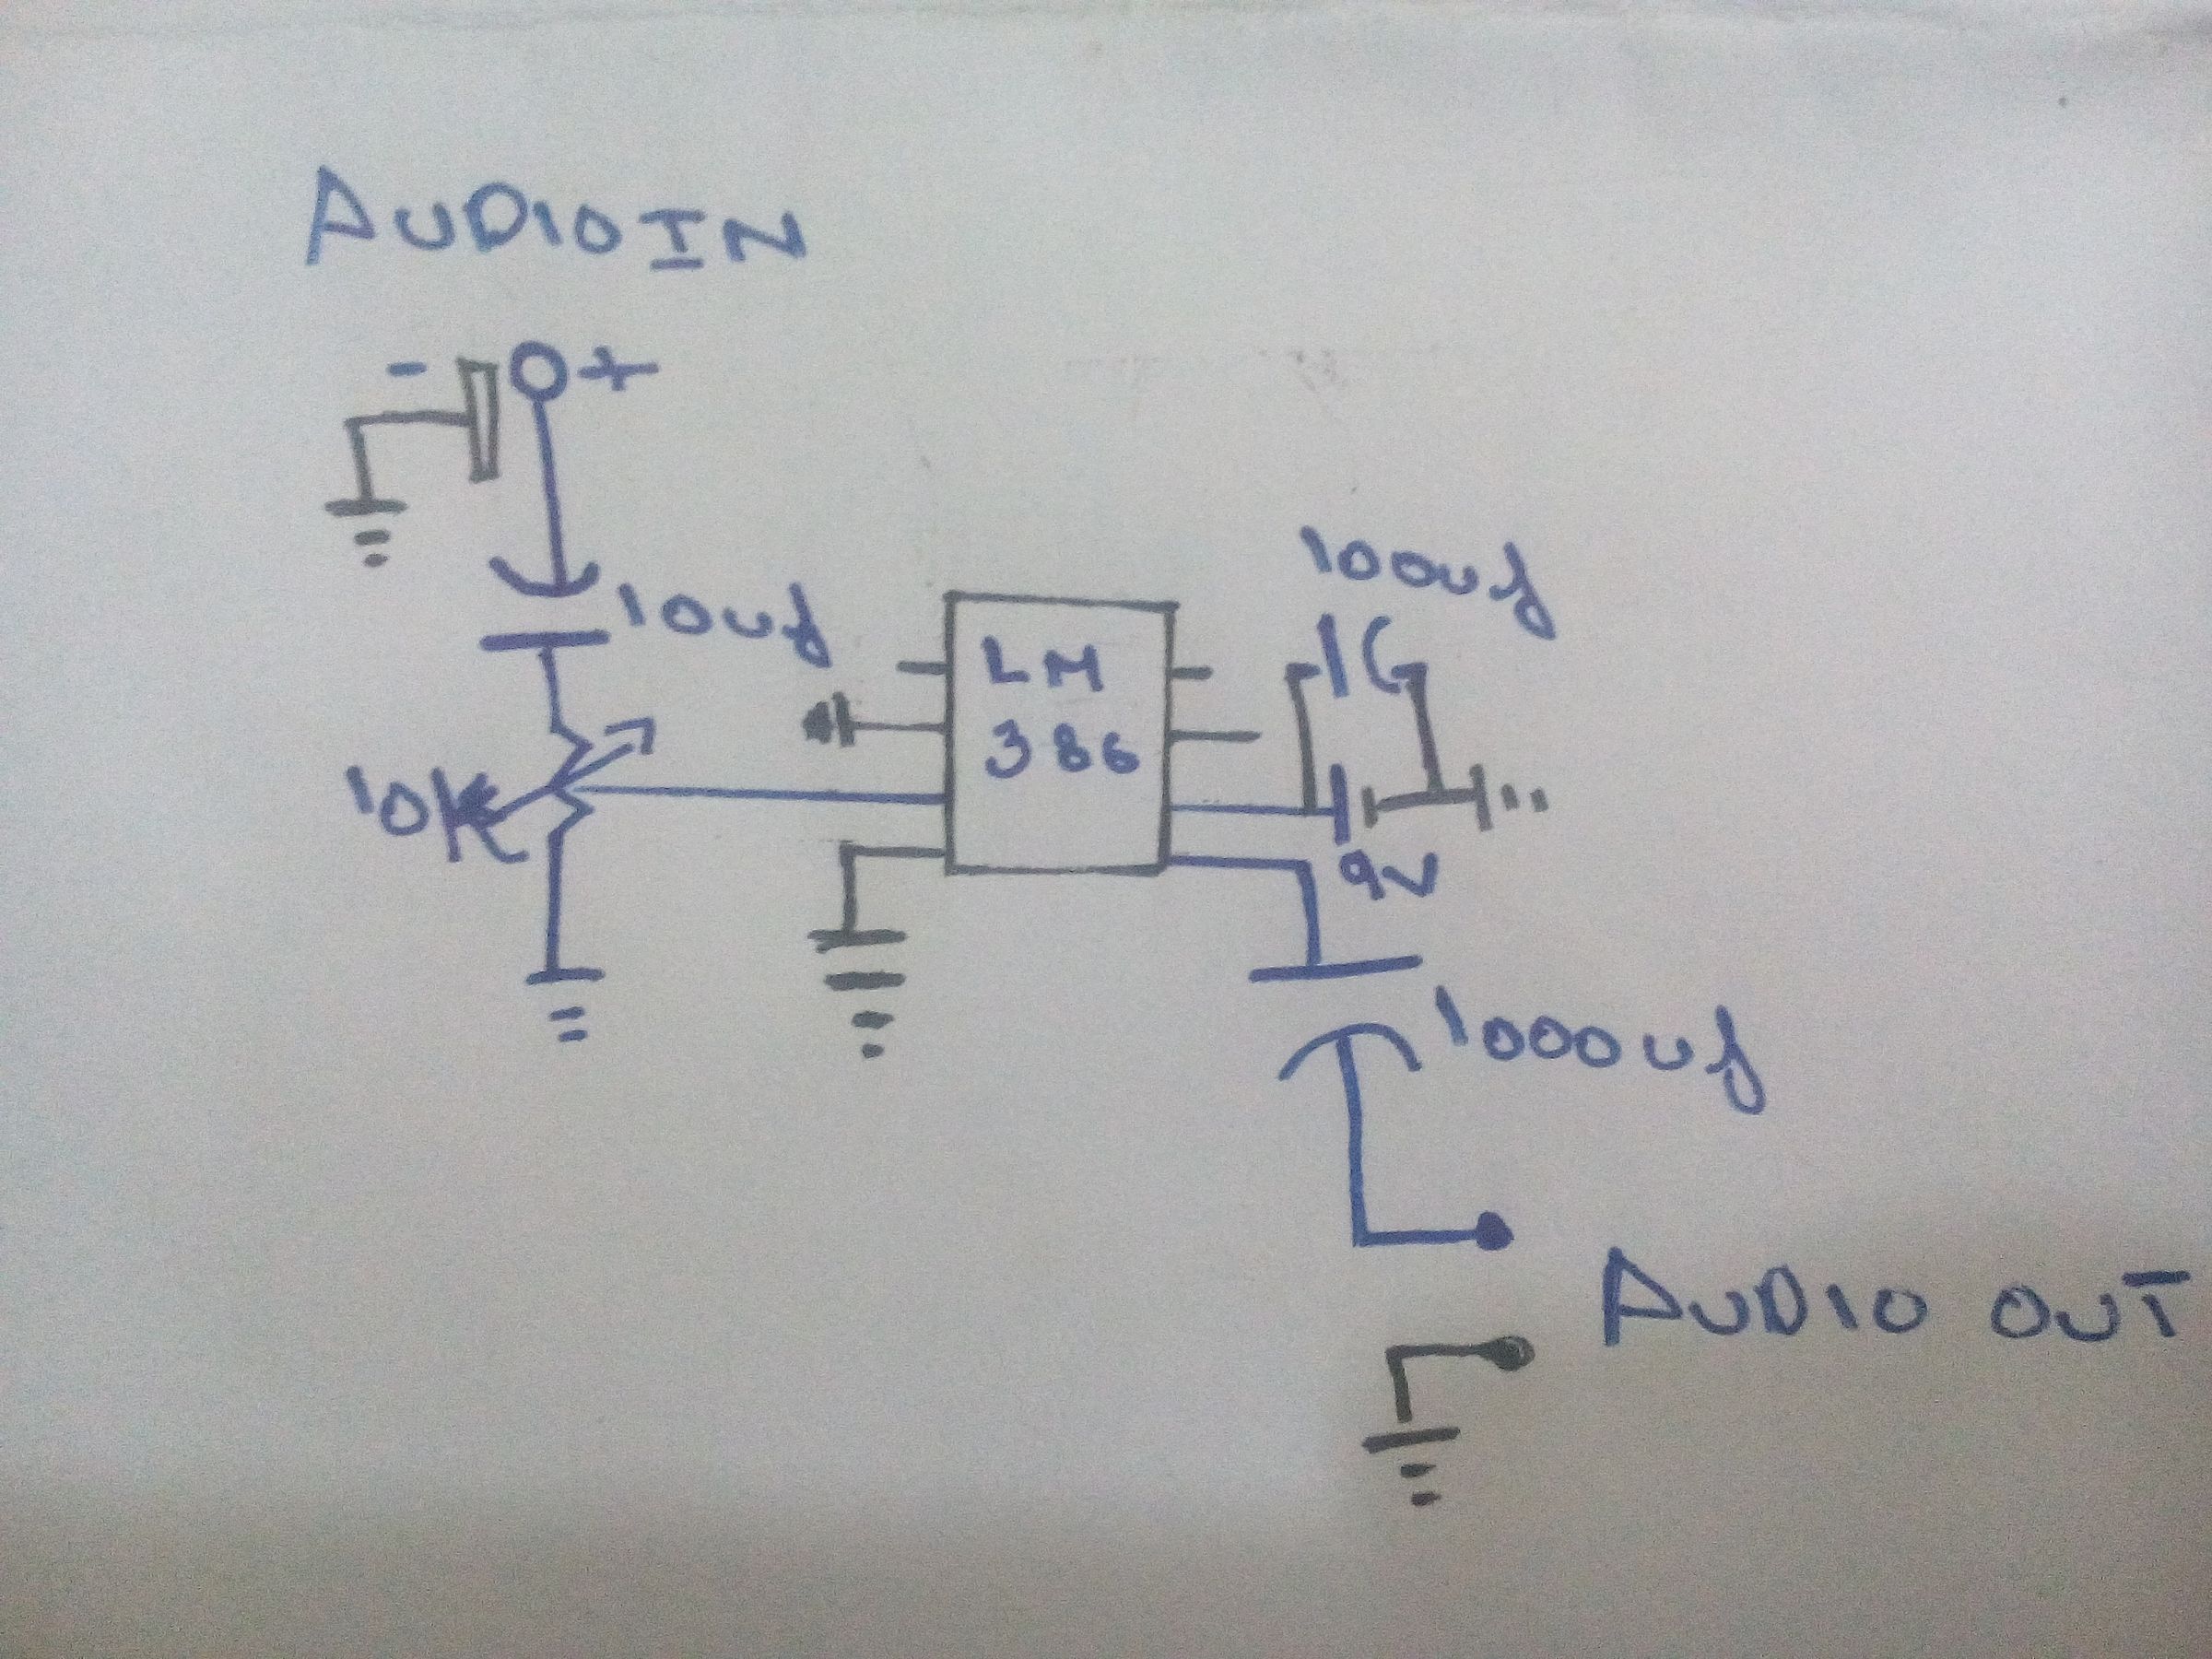 AUDIO IN
- +
10uf
100uf
LM
386
10K
9V
1000uf
AUDIO OUT